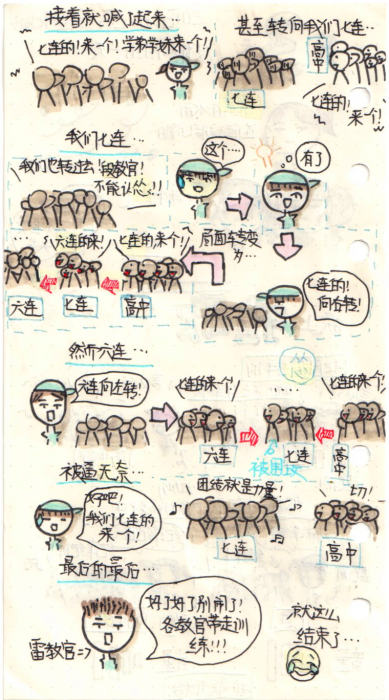 接着就喊了起来…
七连的！来一个！学弟学妹来一个！
甚至转向我们七连…
高中
七连
七连的！
来一个！
我们七连…
我们也转过去！段教官！
不能认怂!!!
这个…
有了
六连的来！
七连的来个！
局面转变
为…
六连
七连
高中
七连的！
向右转！
然而六连…
怂
六连向左转！
七连的来个！
....
七连的来个！
六连
七连
高中
被围攻
被逼无奈…
好吧！
我们七连的
来个！
团结就是力量！
切！
七连
高中
最后的最后…
雷教官=>
好了好了别闹了！
各教官带走训
练!!!
就这么
结束了…